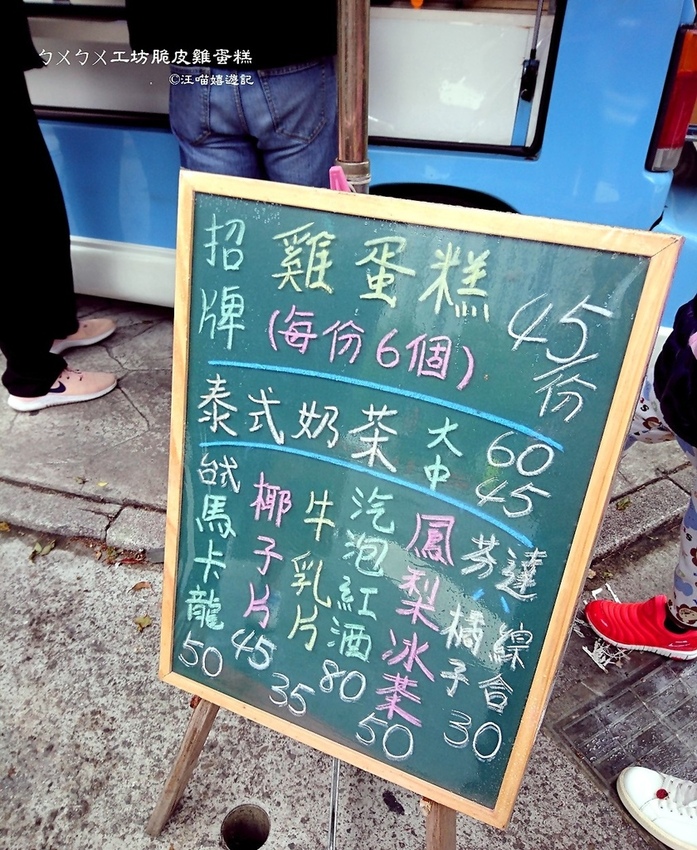 ㄅㄨㄅㄨ工坊脆皮雞蛋糕
©汪喵嬉遊記
招牌
雞蛋糕
(每份6個)
45/份
泰式奶茶
大 60
中 45
台式馬卡龍 50
椰子片 45
牛乳片 35
汽泡紅酒 80
鳳梨冰茶 50
芬達
橘子、綜合
30